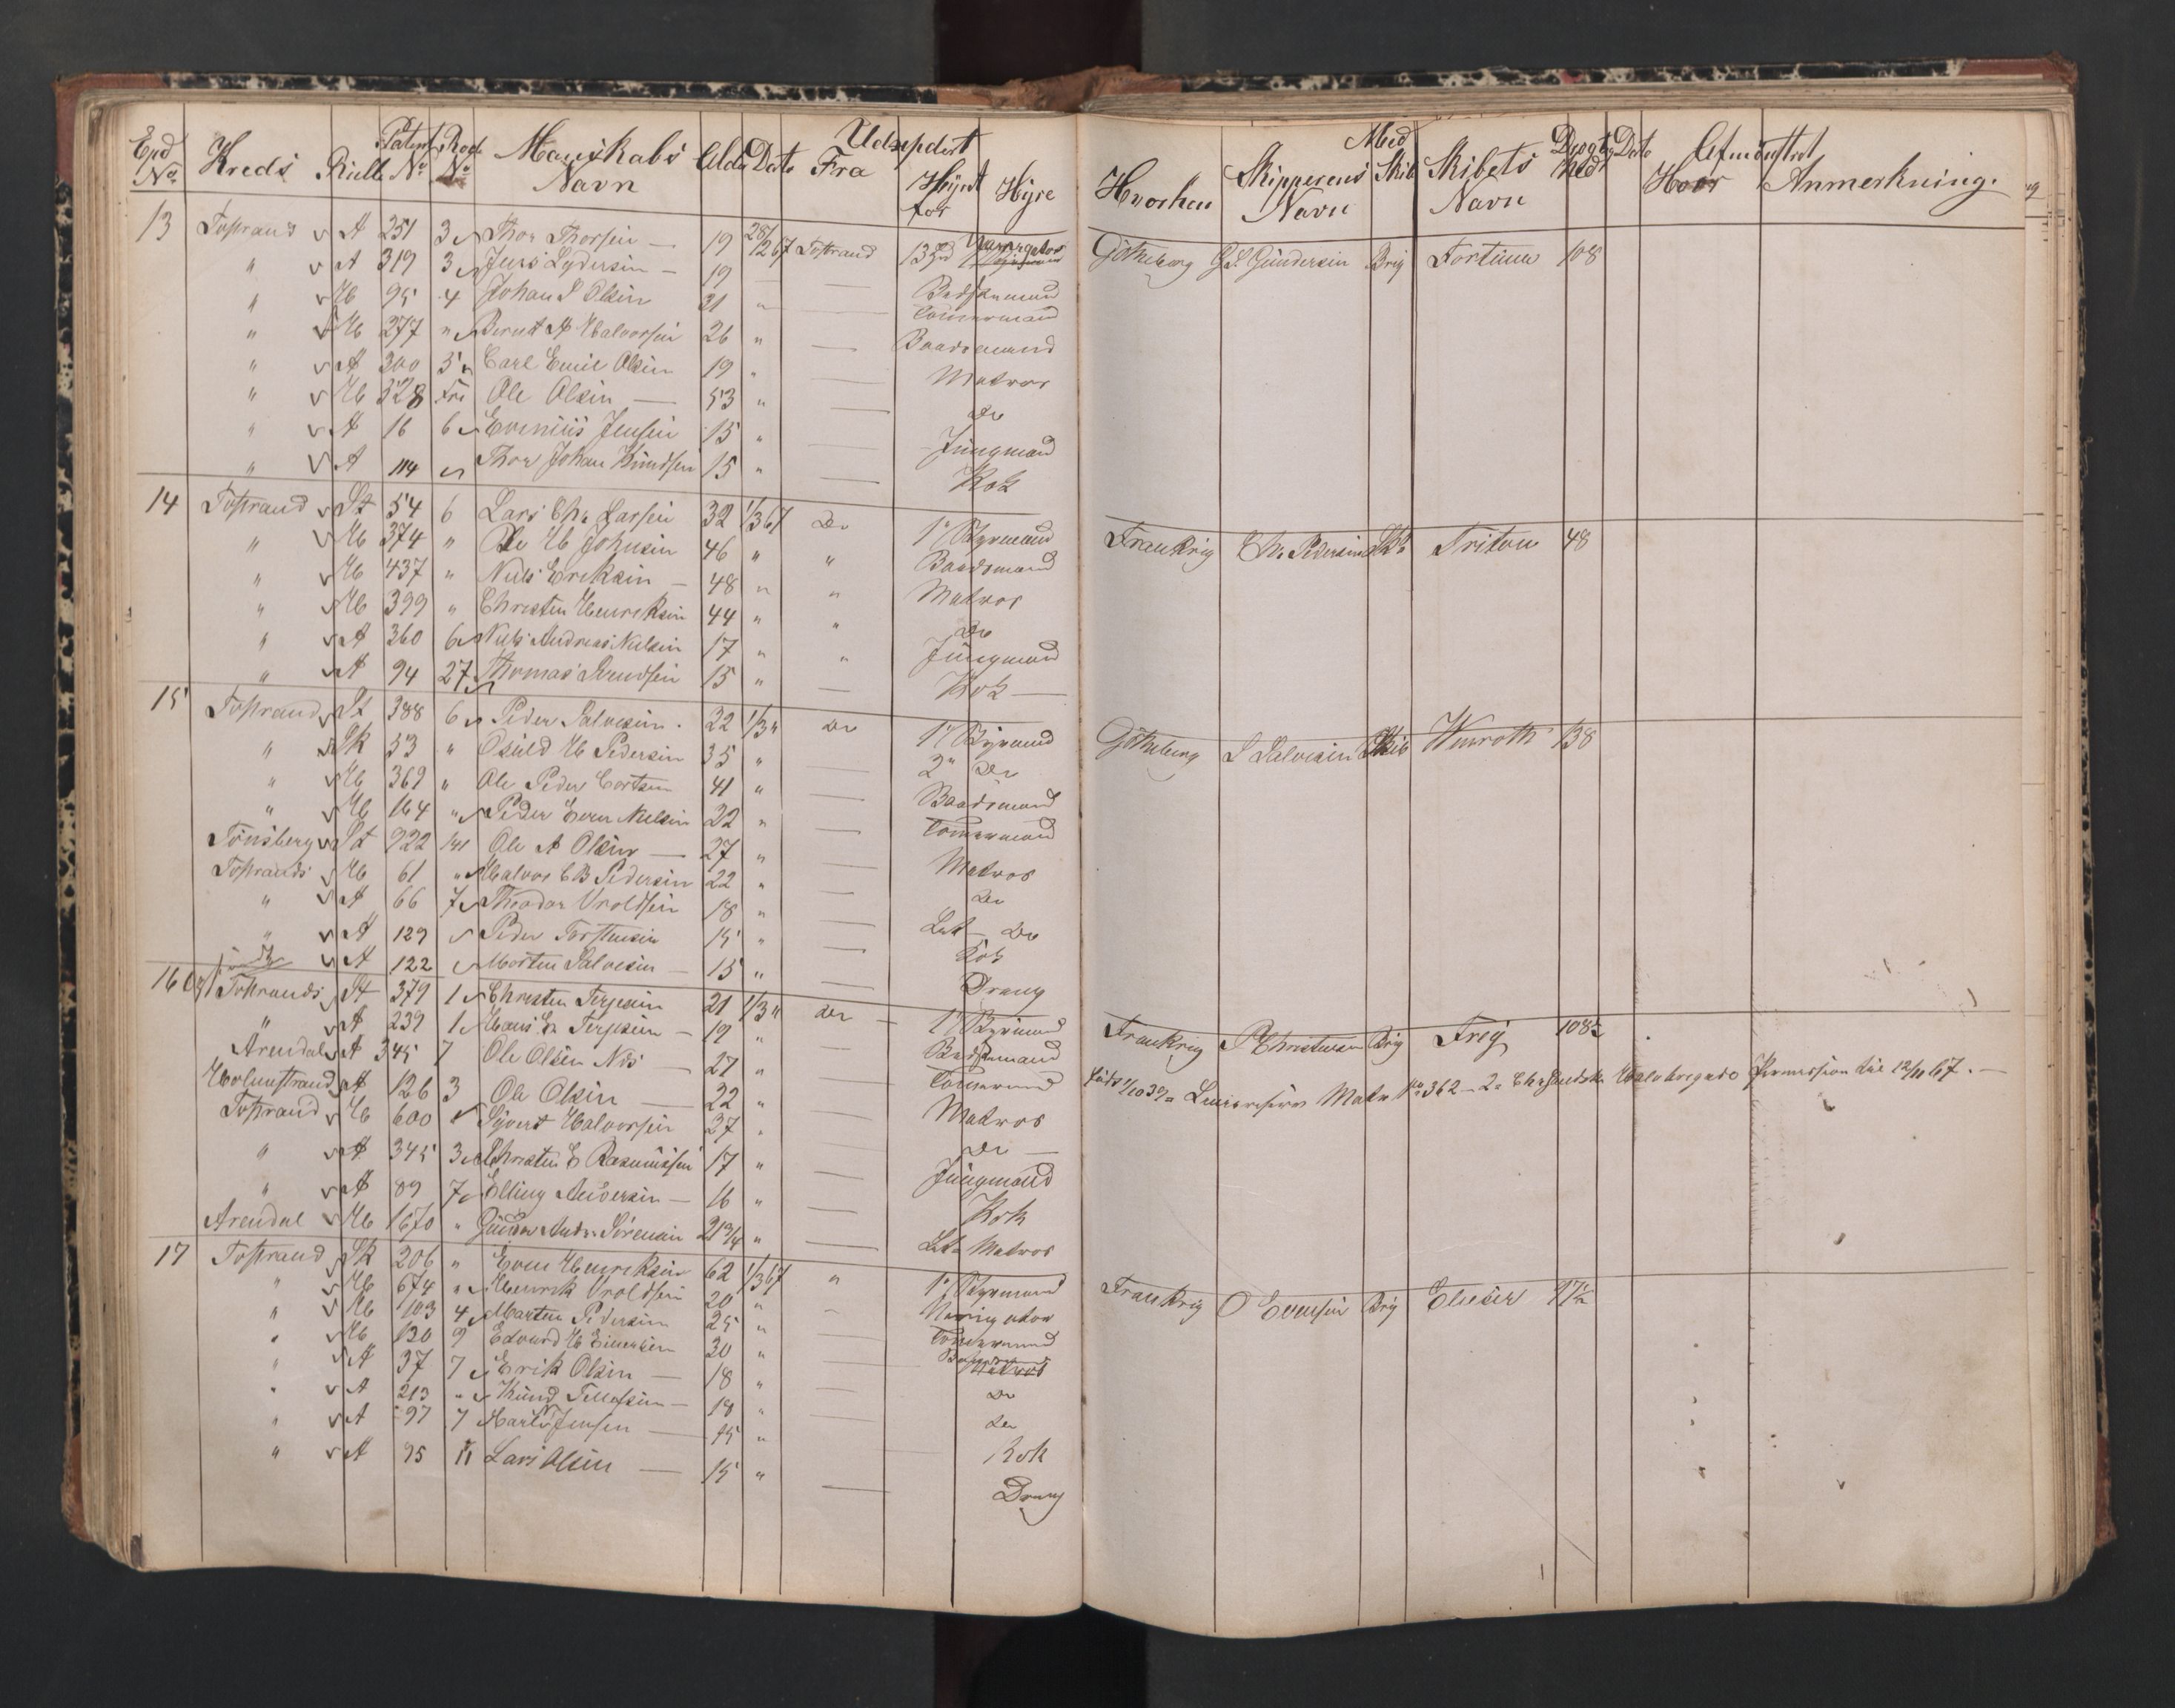 Expd No Kreds Rulle Patent No Rode No Mandskabs Navn Alder Dato Udexpedirt Fra Hÿrt for Hÿre Hvorhen Skipperens Navn Med Skib Skibets Navn Drægtighed Dato Afmønstret Hvor Anmerkning.
13 Tostrand A 251 3 Thor Thorsen 19 28/12 67 Tostrand Navigatør Götheborg G S Gundersen Brig Fortuna 108
" A 319 3 Jens Lydersen 19 Baadsmand
" H 95 4 Johan S Olsen 31 " Tømmermand
" H 277 " Bernt A Halvorsen 26 " Baadsmand
" A 300 5 Carl Emil Olsen 19 " Matros
" H 328 Fri Ole Olsen 53 " Do
" A 16 6 Evenius Jensen 15 " Jüngmand
" A 114 Thor Johan Knudsen 15 " Kok
14 Tostrand St 54 6 Lars Chr Larsen 32 1/3 67 Do 1 Styrmand Frankrig Ch. Pedersen Triton 48
" H 374 " Ole H Johnsen 46 " " Baadsmand
" H 437 " Niels Eriksen 48 " " Matros
" H 399 " Christen Henriksen 44 " " Do
" A 360 6 Niels Andreas Nielsen 17 " " Jüngmand
" A 94 27 Thomas Knudsen 15 " Kok
15 Tostrand St 388 6 Peder Salvesen 22 1/3 " Do 1 Styrmand Götheborg S Salvesen Skib Winroth 138
" Sk 53 " Osuld H Pedersen 35 " 2 Do
" H 369 " Ole Peder 41 " Baadsmand
" H 164 " Peder Even Nielsen 22 " Tømmermand
Tönsberg St 922 141 Ole A Olsen 27 " Matros
Tostrands H 61 " Halvor C B Pedersen 22 " Do
" A 66 7 Theodor Uroldsen 18 " Let Do
" A 129 Peder Torstensen 15 " Kok
A 122 Morten Salvesen 15 " Dreng
16 Tostrands St 379 1 Christen Terjesen 21 1/3 " Do 1 Styrmand Frankrig P Christensen Brig Freÿ 108½
" A 239 1 Hans Terjesen 19 " Baadsmand
Arendal A 345 7 Ole Olsen Næs 27 " Tømmermand
Holmestrand A 126 3 Ole Olsen 22 " Matros Matr No 362 Permission til 12/11 67.
Tostrand H 600 Syvert Halvorsen 27 " Do
" A 345 3 Christen E Rasmussen 17 " Jüngmand
" A 89 7 Elling Andersen 16 " Kok
Arendal H 1670 " Andr. Sørensen 21¾ " Let Matros
17 Tostrand Sk 206 " Even Henriksen 62 1/3 67 " 1 Styrmand Frankrig O Evensen Brig Elieser 97½
" H 674 " Henrik Uroldsen 20 " Navigatør
" H 103 4 Marten Pedersen 25 " Tømmermand
" H 130 9 Edvard H Einersen 30 " Matros
" A 37 7 Erik Olsen 18 " Do
" A 213 " Knud Tellefsen 18 " Do
" A 97 7 Jensen 15 " Kok
" A 95 11 Lars Olsen 15 " Dreng